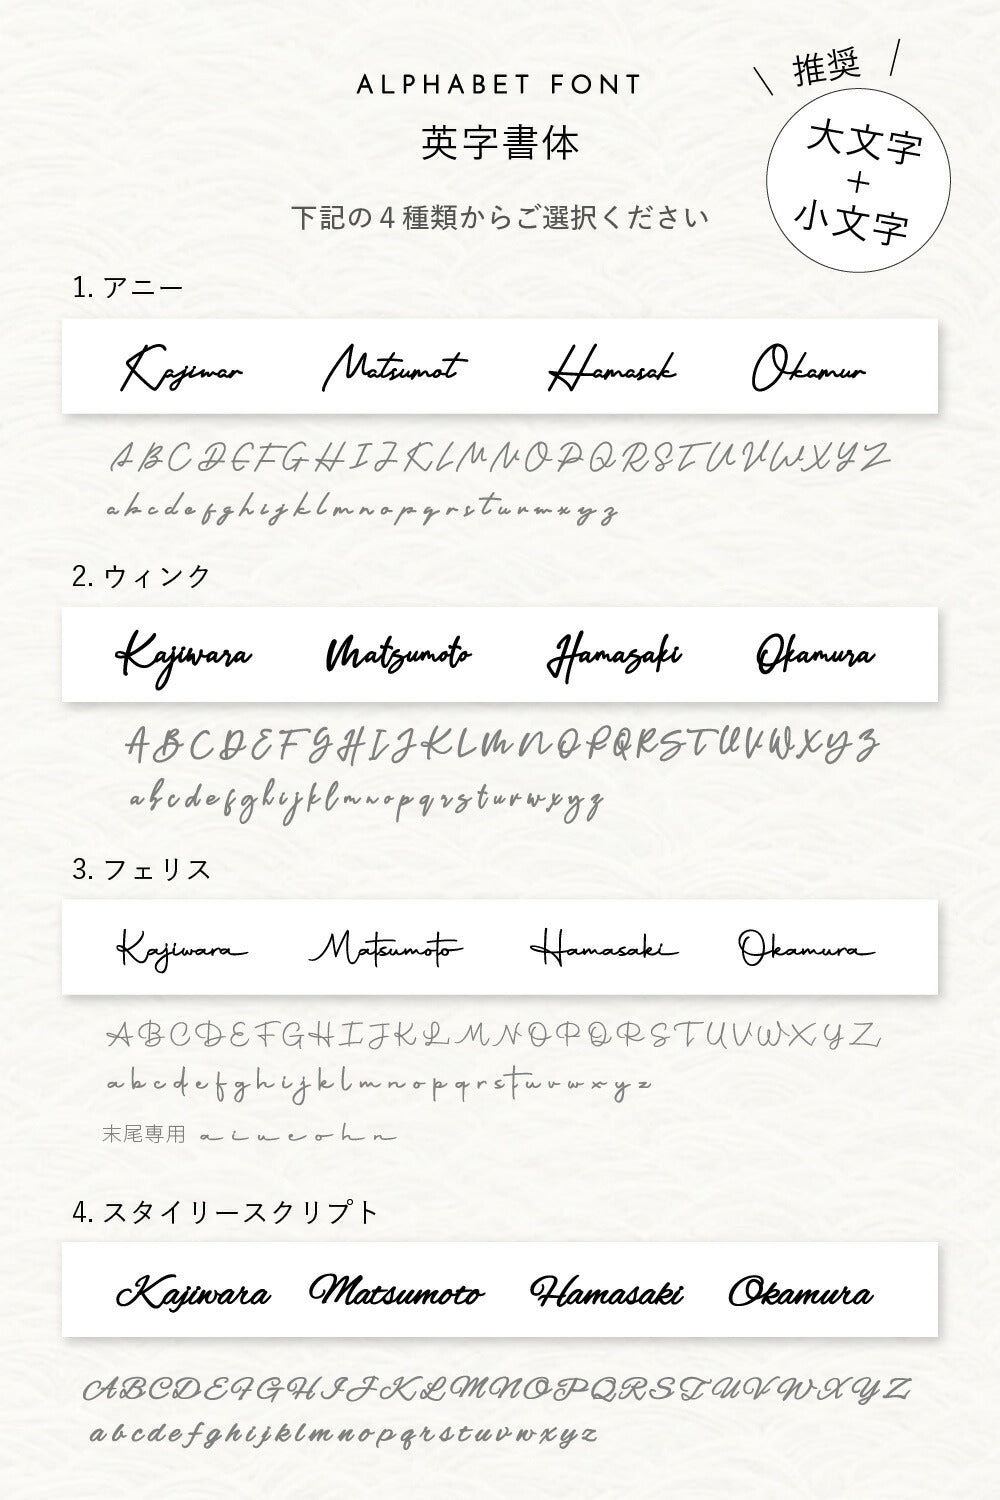 ALPHABET FONT
英字書体
下記の4種類からご選択ください
推奨
大文字
+
小文字
1. アニー
Kajiwar Matsumot Hamasak Okamur
ABCDEFGHIJKLMNOPQRSTUVWXYZ
abcdefghijklmnopqrstuvwxyz
2. ウィンク
Kajiwara Matsumoto Hamasaki Okamura
ABCDEFGHIJKLMNOPQRSTUVWXYZ
abcdefghijklmnopqrstuvwxyz
3. フェリス
Kajiwara Matsumoto Hamasaki Okamura
ABCDEFGHIJKLMNOPQRSTUVWXYZ
abcdefghijklmnopqrstuvwxyz
末尾専用 a i u e o h n
4. スタイリースクリプト
Kajiwara Matsumoto Hamasaki Okamura
ABCDEFGHIJKLMNOPQRSTUVWXYZ
abcdefghijklmnopqrstuvwxyz